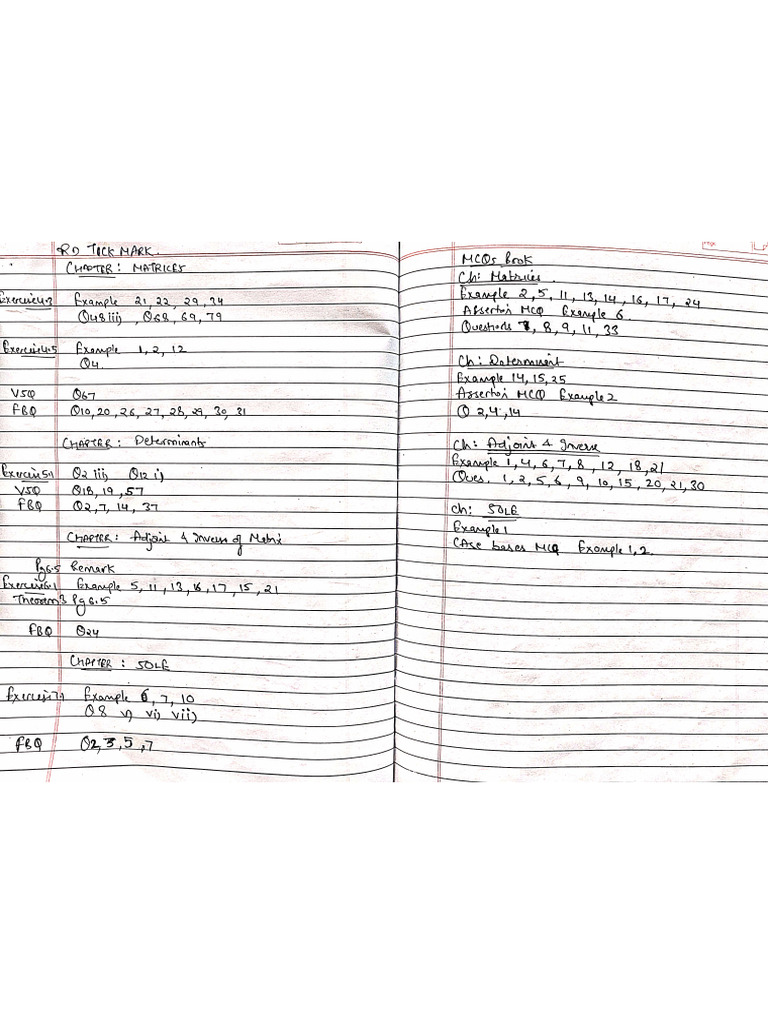 RD TICK MARK.
CHAPTER: MATRICES
Exercise 4.3 Example 21, 22, 29, 34
Q48 iii), Q68, 69, 79
Exercise 4.5 Example 1, 2, 12
Q4.
VSQ Q67
FBQ Q10, 20, 26, 27, 28, 29, 30, 31
CHAPTER: Determinants
Exercise 5.1 Q2 iii) Q12 i)
VSQ Q18, 19, 57
FBQ Q2, 7, 14, 37
CHAPTER: Adjoint & Inverse of Matrix
Pg 6.5 Remark
Exercise 6.1 Example 5, 11, 13, 16, 17, 15, 21
Theorem 3 Pg 6.15
FBQ Q24
CHAPTER: SOLE
Exercise 7.1 Example 6, 7, 10
Q8 v) vi) vii)
FBQ Q2, 3, 5, 7
MCQs Book
Ch: Matrices
Example 2, 5, 11, 13, 14, 16, 17, 24
Assertion MCQ Example 6.
Questions 8, 9, 11, 33
Ch: Determinant
Example 14, 15, 25
Assertion MCQ Example 2
Q 2, 4, 14
Ch: Adjoint & Inverse
Example 1, 4, 6, 7, 8, 12, 18, 21
Ques. 1, 2, 5, 6, 9, 10, 15, 20, 21, 30
Ch: SOLE
Example 1
Case bases MCQ Example 1, 2.